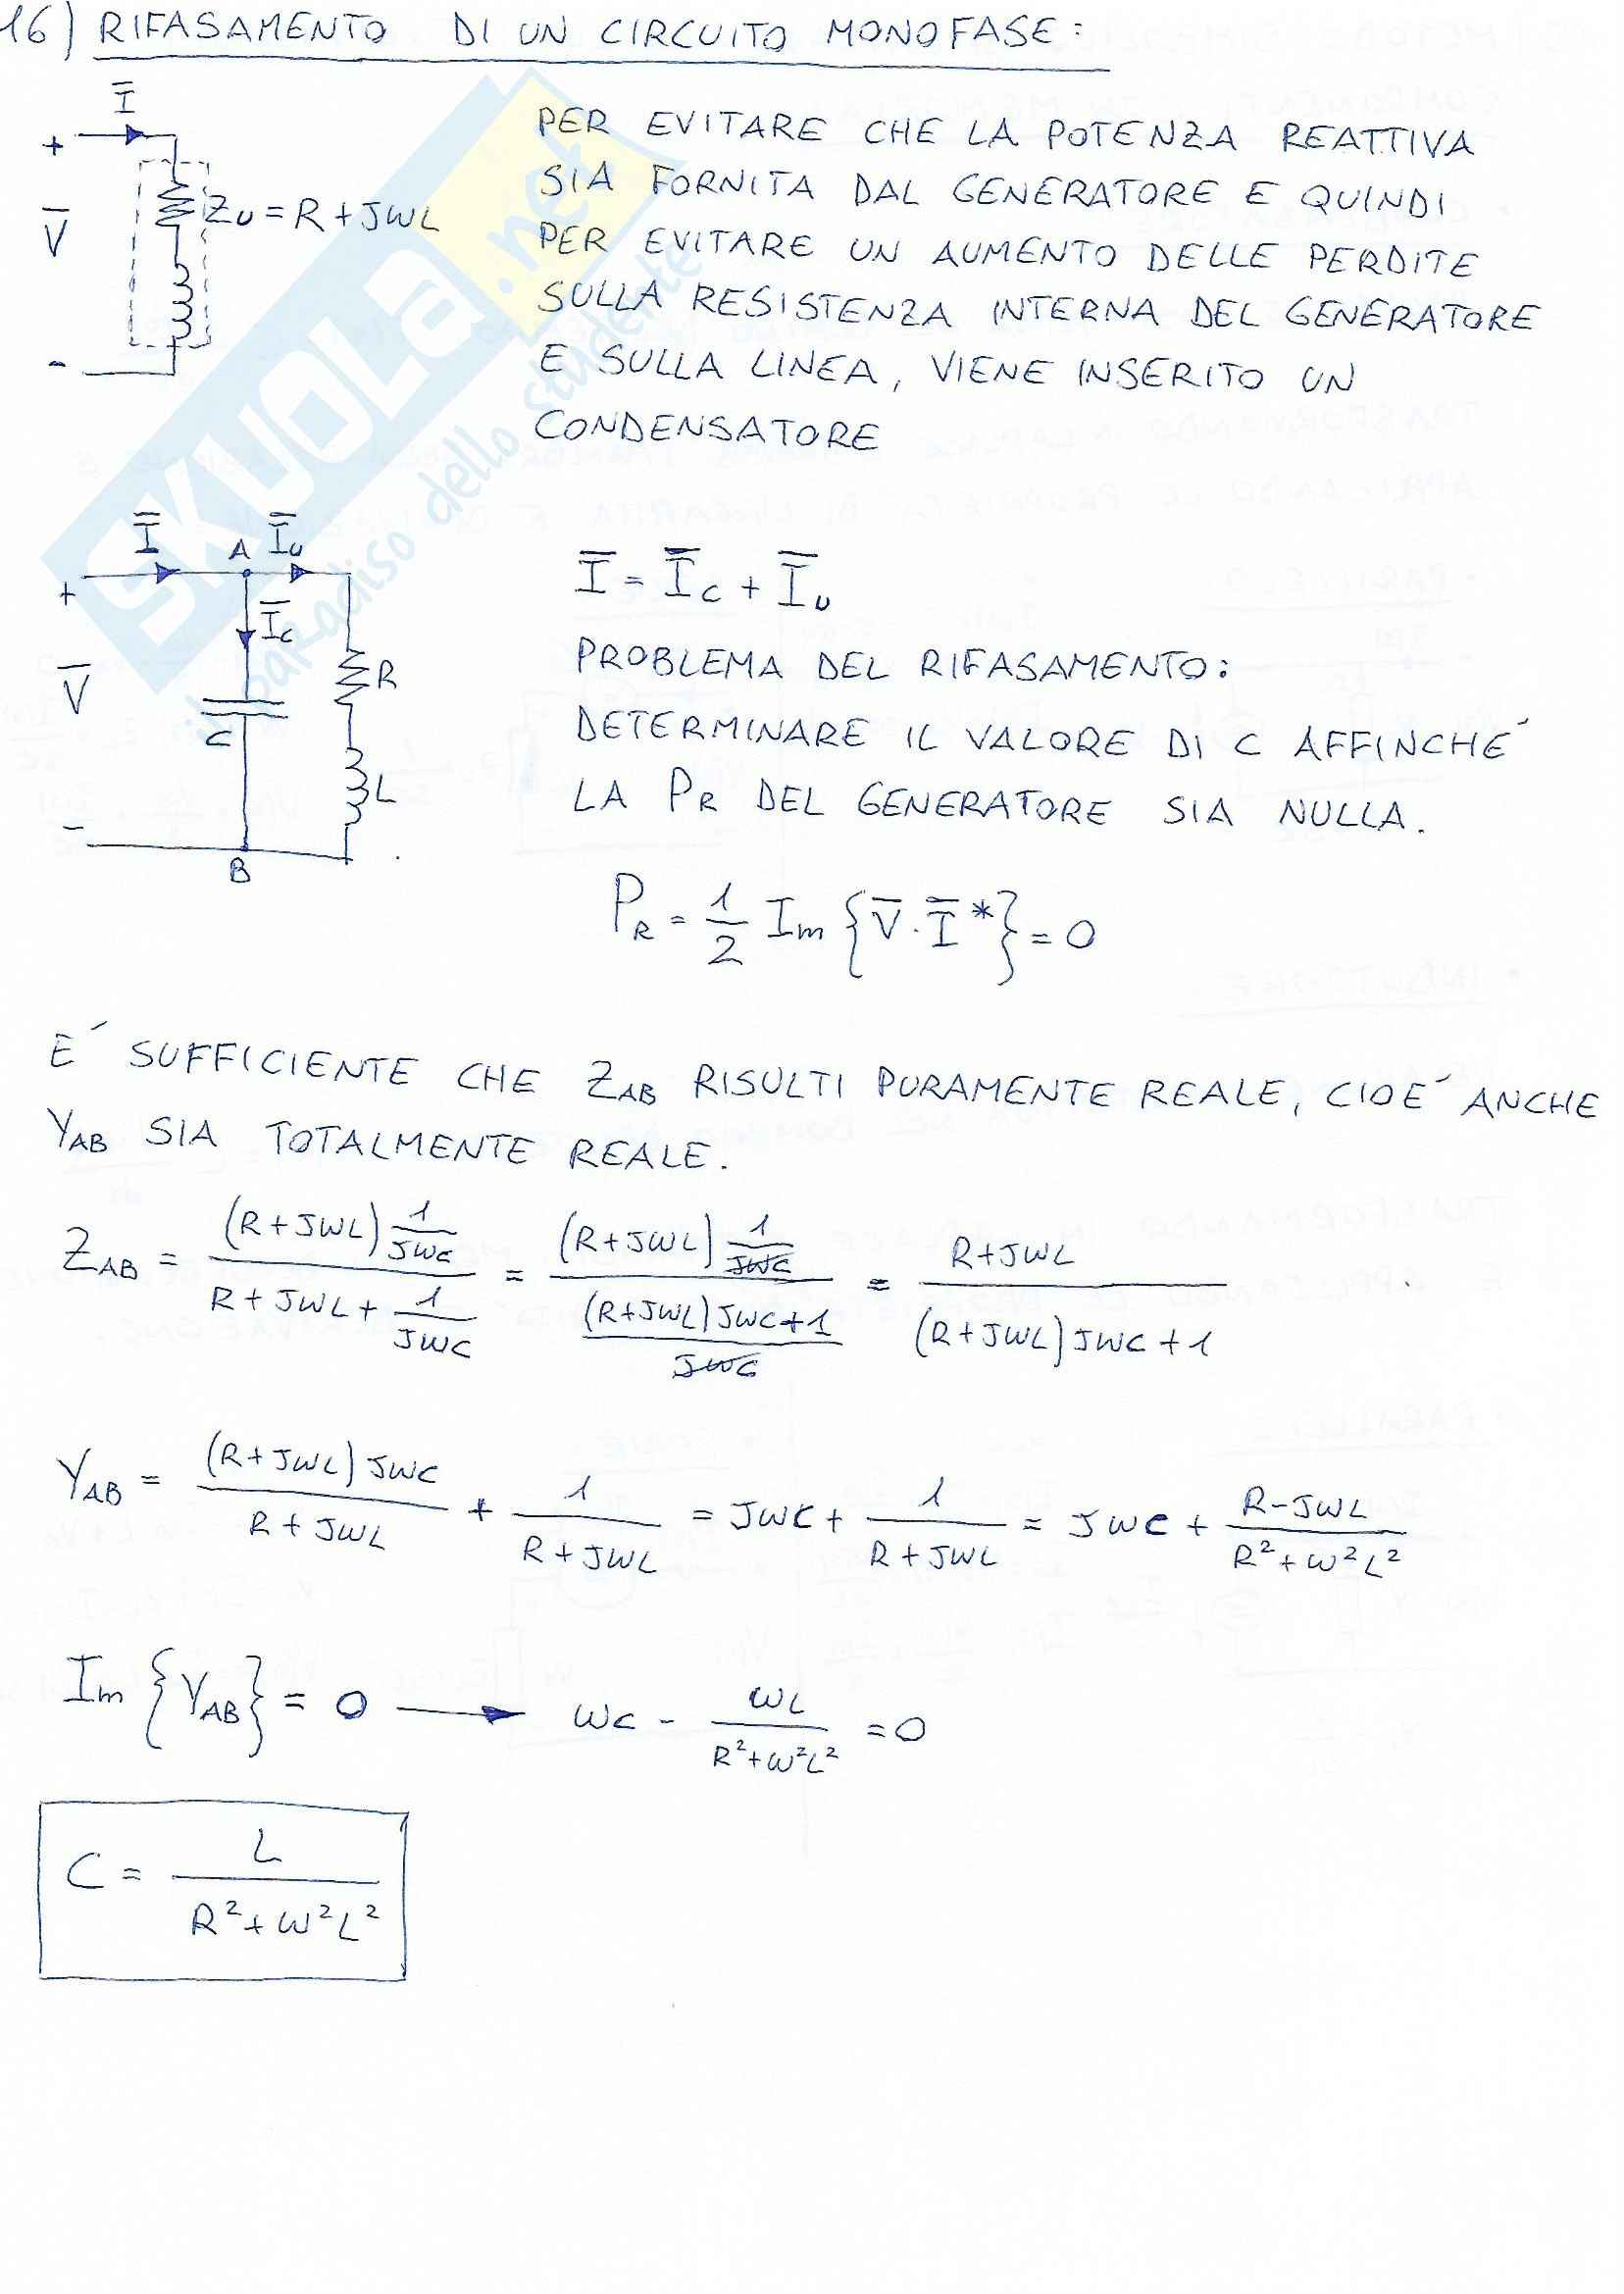 16) RIFASAMENTO DI UN CIRCUITO MONOFASE:
Ī
+
V̄
-
Z_U = R + JWL
PER EVITARE CHE LA POTENZA REATTIVA
SIA FORNITA DAL GENERATORE E QUINDI
PER EVITARE UN AUMENTO DELLE PERDITE
SULLA RESISTENZA INTERNA DEL GENERATORE
E SULLA LINEA, VIENE INSERITO UN
CONDENSATORE
SKUOLA.net
il paradiso dello studente
Ī A Ī_U
+
Ī_C
V̄
R
C
L
-
B
Ī = Ī_C + Ī_U
PROBLEMA DEL RIFASAMENTO:
DETERMINARE IL VALORE DI C AFFINCHE´
LA P_R DEL GENERATORE SIA NULLA.
P_R = 1/2 Im {V̄ · Ī*} = 0
E´ SUFFICIENTE CHE Z_AB RISULTI PURAMENTE REALE, CIOE´ ANCHE
Y_AB SIA TOTALMENTE REALE.
Z_AB = ((R+JWL) 1/JWC) / (R+JWL + 1/JWC) = ((R+JWL) 1/JWC) / (((R+JWL)JWC+1)/JWC) = (R+JWL) / ((R+JWL)JWC+1)
Y_AB = ((R+JWL)JWC) / (R+JWL) + 1/(R+JWL) = JWC + 1/(R+JWL) = JWC + (R-JWL)/(R²+W²L²)
Im {Y_AB} = 0 → WC - WL/(R²+W²L²) = 0
C = L/(R²+W²L²)